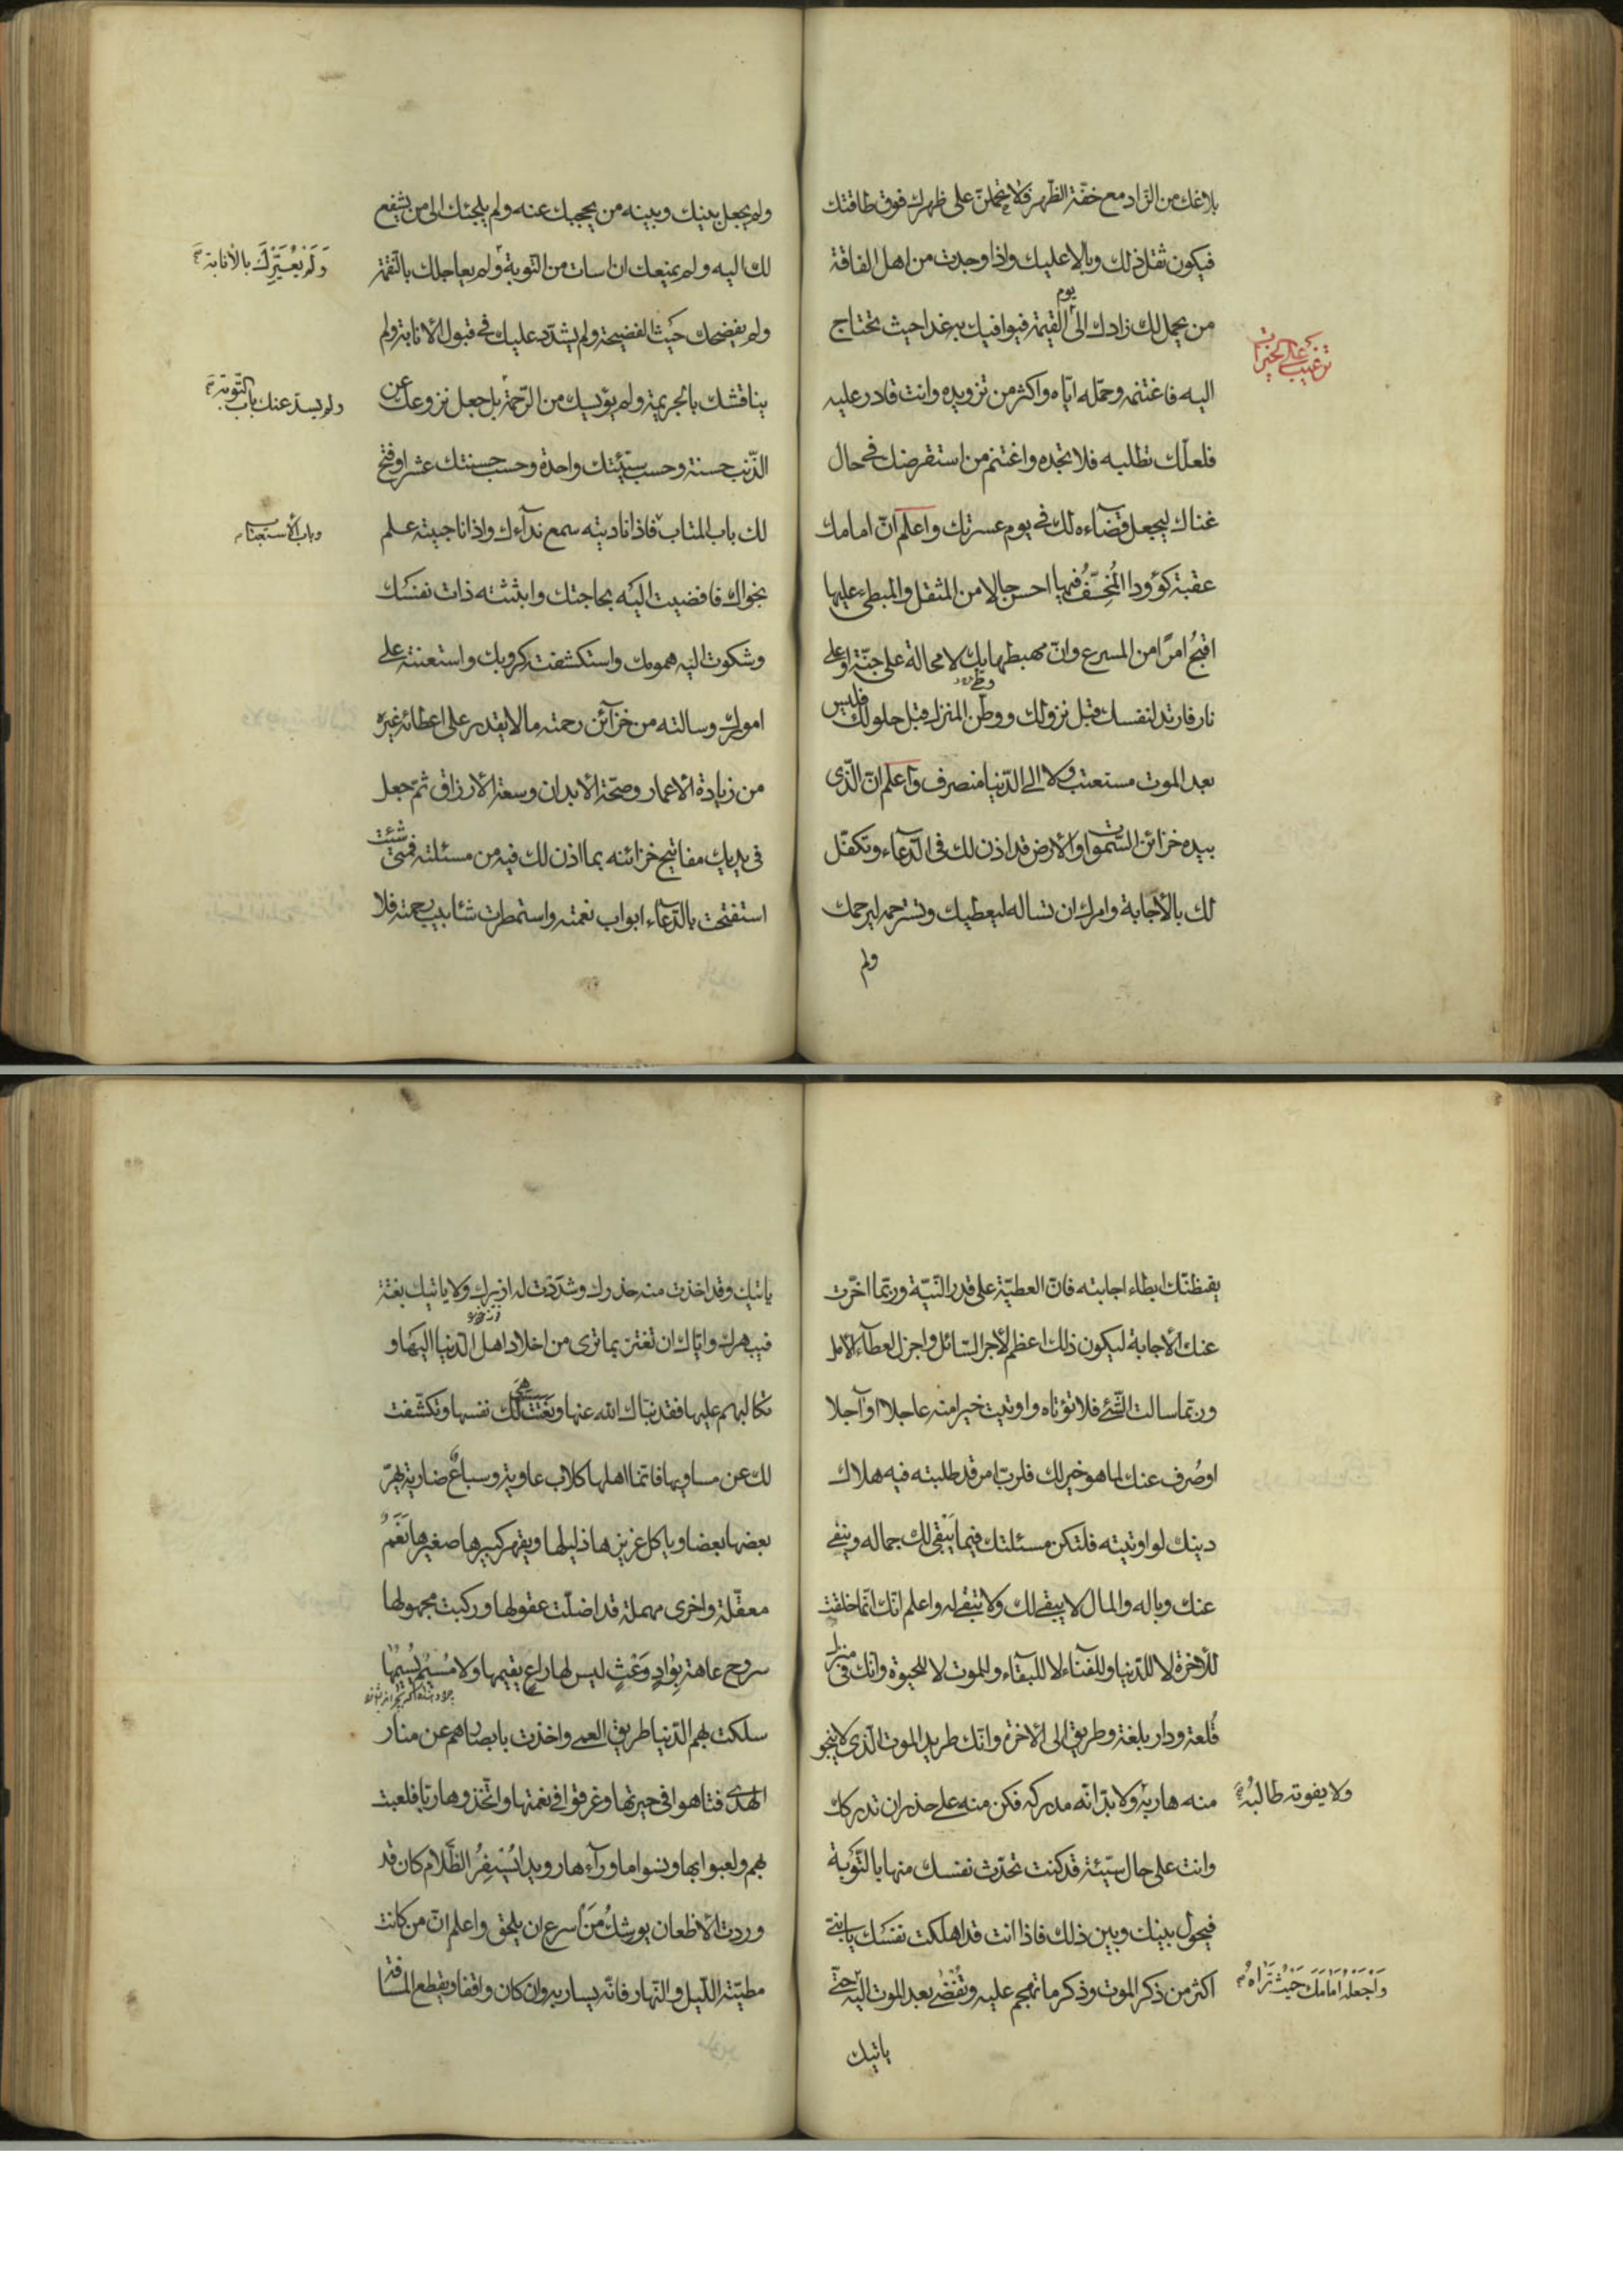 بلاغك من الزاد مع خفّة الظّهر فلا تحملنّ على ظهرك فوق طاقتك
فيكون ثقل ذلك وبالا عليك واذا وجدت من اهل الفاقة
من يحمل لك زادك الى يوم القيمة فيوافيك به غدا حيث تحتاج
ترغيب على الخيرات
اليه فاغتنمه وحمّله ايّاه واكثر من تزويده وانت قادر عليه
فلعلّك تطلبه فلا تجده واغتنم من استقرضك فى حال
غناك ليجعل قضآءه لك فى يوم عسرتك واعلم انّ امامك
عقبة كؤودا المُخِفُّ فيها احسن حالا من المثقل والمبطئ عليها
اقبحُ امرًا من المسرع وانّ مهبطها بك لا محالة على جنّة او على
نار فارتد لنفسك قبل نزولك ووطّن المنزل قبل حلولك فليس
بعد الموت مستعتب ولا الى الدّنيا منصرف واعلم انّ الّذى
بيده خزائن السّموات والارض قد اذن لك فى الدّعاء وتكفّل
لك بالأجابة وامرك ان تساله ليعطيك وتسترحمه ليرحمك
ولم
ولم يجعل بينك وبينه من يحجبك عنه ولم يلجئك الى من يشفع
لك اليه ولم يمنعك ان اسات من التوبة ولم يعاجلك بالنّقمة
وَلَمْ يُعَيِّرْكَ بالأنابة
ولم يفضحك حَيثُ الفضيحة ولم يشدّد عليك فى قبول الأنابة ولم
يناقشك بالجريمة ولم يؤيسك من الرّحمة بل جعل نزوعك عن
ولم يسدّ عنك باب التّوبة
الذّنب حسنة وحسب سيّئتك واحدة وحسب حسنتك عشرا وفتح
لك باب المتاب فاذا ناديته سمع ندآءك واذا ناجيته علم
وباب الأستعتاب
نجواك فافضيت اليه بحاجتك وابثثته ذات نفسك
وشكوت اليه همومك واستكشفته كروبك واستعنته على
امورك وسالته من خزآئن رحمته ما لا يقدر على اعطائه غيره
من زيادة الأعمار وصحّة الأبدان وسعة الأرزاق ثمّ جعل
فى يديك مفاتيح خزائنه بما اذن لك فيه من مسئلته فمتى شئت
استفتحت بالدّعآء ابواب نعمته واستمطرت شئابيب رحمته فلا
يقنطنّك ابطاء اجابته فانّ العطيّة على قدر النّيّة وربّما اخّرت
عنك الأجابة ليكون ذلك اعظم لأجر السّائل واجزل لعطآء الآمل
وربّما سالت الشّئ فلا تؤتاه واوتيت خيرا منه عاجلا او آجلا
او صُرف عنك لما هو خير لك فلربّ امر قد طلبته فيه هلاك
دينك لو اوتيته فلتكن مسئلتك فيما يَبْقى لك جماله وينفى
عنك وباله والمال لا يبقى لك ولا تبقى له واعلم انّك انّما خلقت
للأخرة لا للدّنيا وللفنآء لا للبقآء وللموت لا للحيوة وانك فى منزل
قُلعة ودار بلغة وطريق الى الأخرة وانّك طريد الموت الّذى لا ينجو
منه هاربه ولا بدّ انّه مدركه فكن منه على حذر ان تدركك
ولا يفوته طالبُهُ
وانت على حال سيّئة قد كنت تحدّث نفسك منها بالتّوبة
فيحول بينك وبين ذلك فاذا انت قد اهلكت نفسك يا بنىّ
اكثر من ذكر الموت وذكر ما تهجم عليه وتُفْضى بعد الموت اليه حتّى
وَاجْعَلْهُ اَمَامَكَ حَيْثُ تَرَاهُ
ياتيك
ياتيك وقد اخذت منه حذرك وشدّدت له ازرك ولا ياتيك بغتة
فيبهرك وايّاك ان تغترّ بما ترى من اخلاد اهل الدّنيا اليها و
تكالبهم عليها فقد نبّاك الله عنها ونعتت لك هى نفسها وتكشّفت
لك عن مساويها فانّما اهلها كلاب عاوية وسباعٌ ضارية يهرّ
بعضها بعضا وياكل عزيزها ذليلها ويقهر كبيرها صغيرها نَعَمٌ
معقّلة واخرى مهملة قد اضلّت عقولها وركبت مجهولها
سروح عاهة بِوَادٍ وَعْثٍ ليس لها راعٍ يقيمها ولا مُسِيمٌ يُسِيمُها
سلكت بهم الدّنيا طريق العمى واخذت بابصارهم عن منار
الهدى فتاهوا فى حيرتها وغرقوا فى نعمتها واتّخذوها ربّا فلعبت
بهم ولعبوا بها ونسوا ما ورآءها رويدا يُسْفِرُ الظّلام كان قد
وردت الأظعان يوشكُ مَن اسرع ان يلحق واعلم انّ من كانت
مطيّته اللّيل والنّهار فانّه يسار به وان كان واقفا ويقطع المسافة